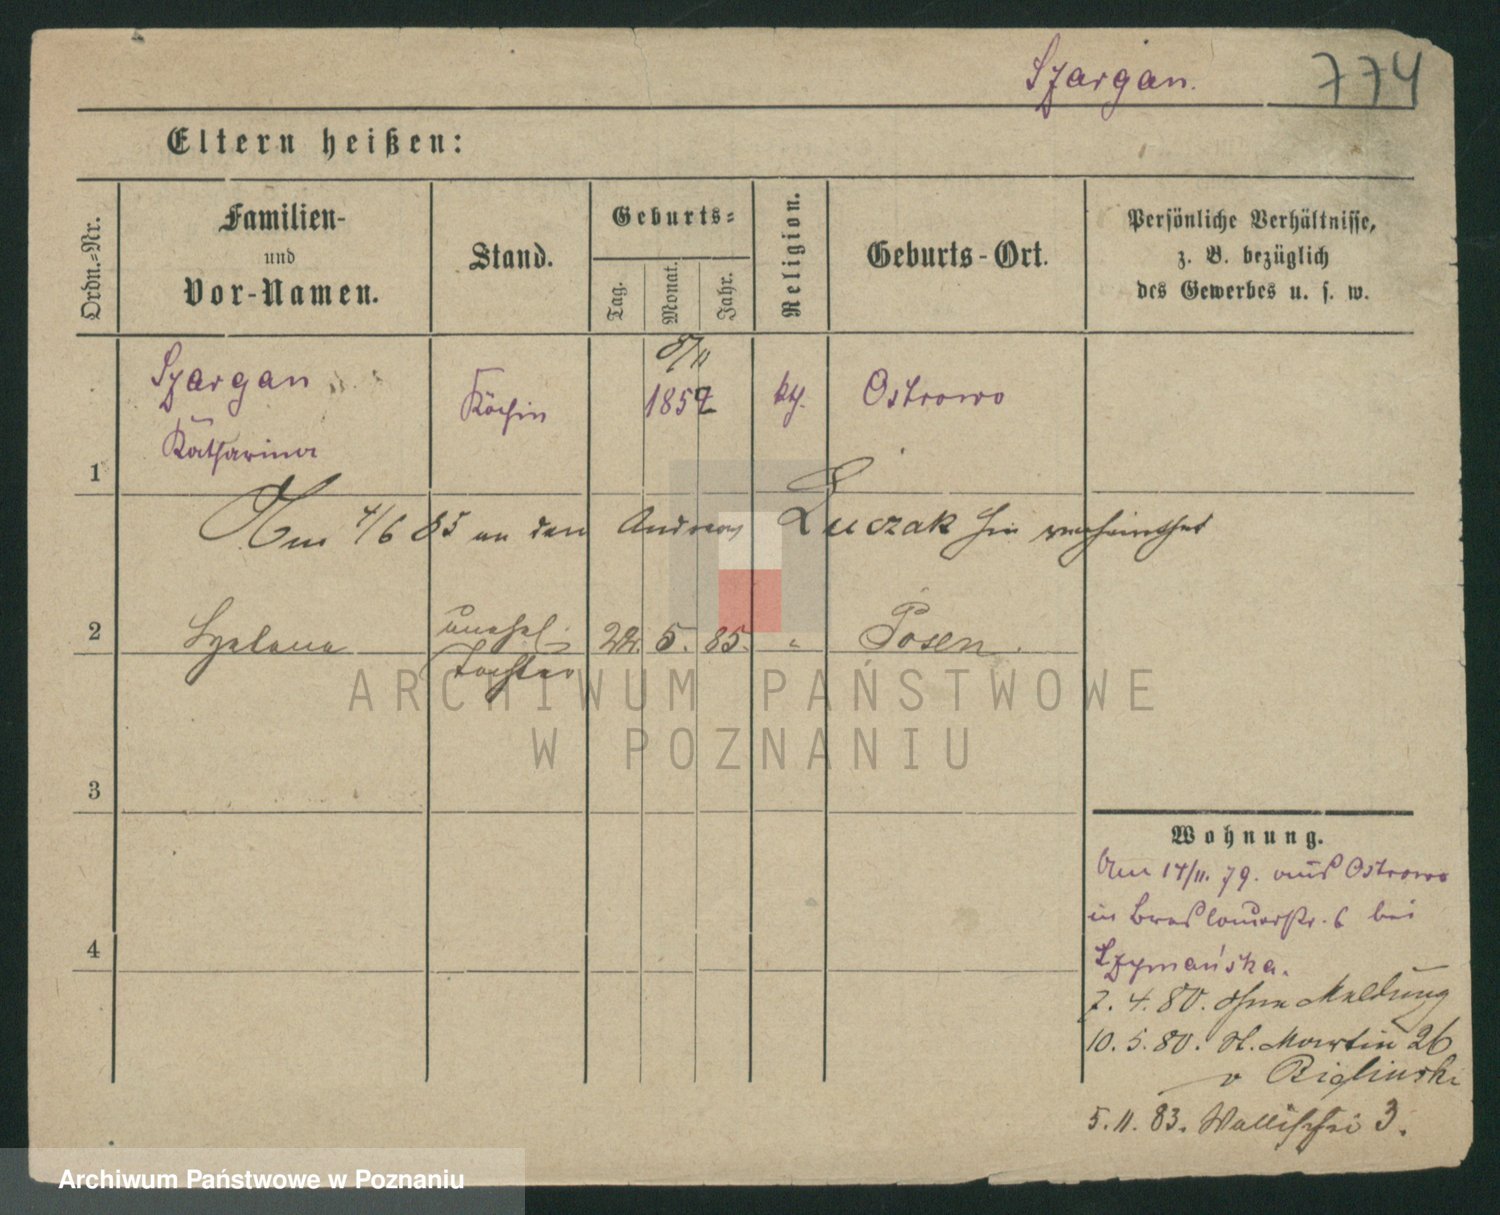 Szargan.
774
Eltern heißen:
Ordn.=Nr.
Familien-
und
Vor-Namen.
Stand.
Geburts=
Tag.
Monat.
Jahr.
Religion.
Geburts-Ort.
Persönliche Verhältnisse,
z. B. bezüglich
des Gewerbes u. s. w.
8/11
Szargan
Köchin
1857
kth.
Ostrowo
Katharina
1
Am 4/6 85 an den Andreas Luczak hier verheirathet
2
Helena
unehel.
Tochter
22. 5. 85.
"
Posen.
ARCHIWUM PAŃSTWOWE
W POZNANIU
3
Wohnung.
Am 14/11. 79. aus Ostrowo
in Breslauerstr. 6 bei
Szymańska.
4
7. 4. 80. ohne Meldung
10. 5. 80. St. Martin 26
v
5. 11. 83. Wallischei 3.
Archiwum Państwowe w Poznaniu